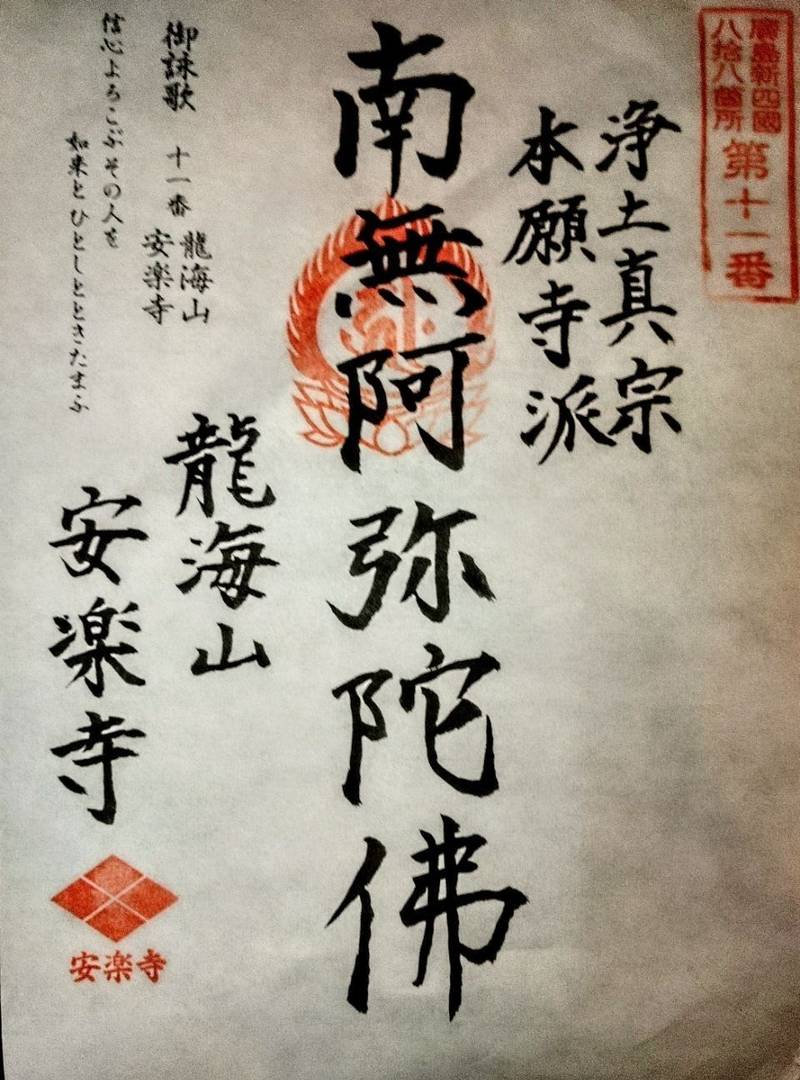 廣島新四國
八拾八箇所
第十一番
浄土真宗
本願寺派
南無阿弥陀佛
龍海山
安楽寺
御詠歌 十一番 龍海山
安楽寺
信心よろこぶその人を
如来とひとしとときたまふ
安楽寺